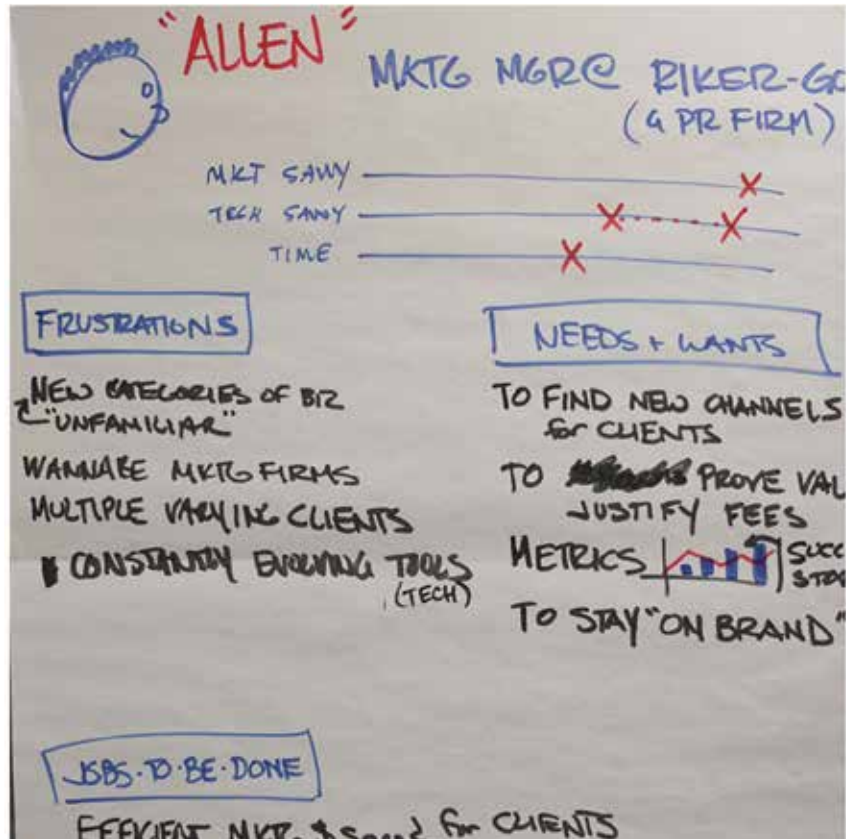 "ALLEN"
MKTG MGR@ RIKER-GO
(a PR FIRM)
MKT SAVVY
TECH SAVVY
TIME
FRUSTRATIONS
NEW CATEGORIES OF BIZ
"UNFAMILIAR"
WANNABE MKTG FIRMS
MULTIPLE VARYING CLIENTS
CONSTANTLY EVOLVING TOOLS
(TECH)
NEEDS + WANTS
TO FIND NEW CHANNELS
for CLIENTS
TO PROVE VAL
JUSTIFY FEES
METRICS SUCC
STO
TO STAY "ON BRAND"
JOBS-TO-BE-DONE
EFFICIENT MKTG $ for CLIENTS